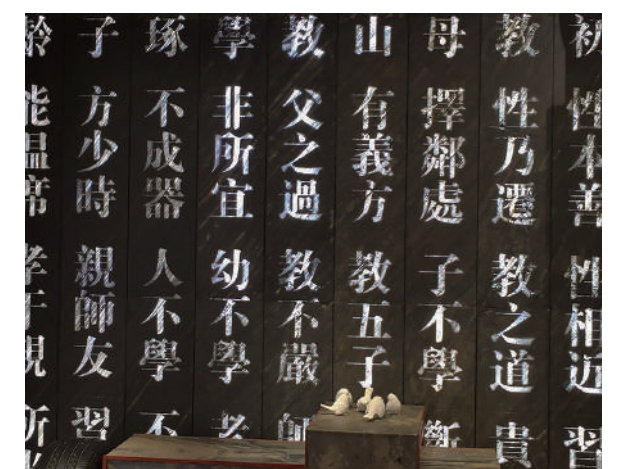 初 性本善 性相近 習
教 性乃遷 教之道 貴
母 擇鄰處 子不學 斷
山 有義方 教五子
教 父之過 教不嚴 師
學 非所宜 幼不學 老
琢 不成器 人不學 不
子 方少時 親師友 習
齡 能溫席 孝于親 所